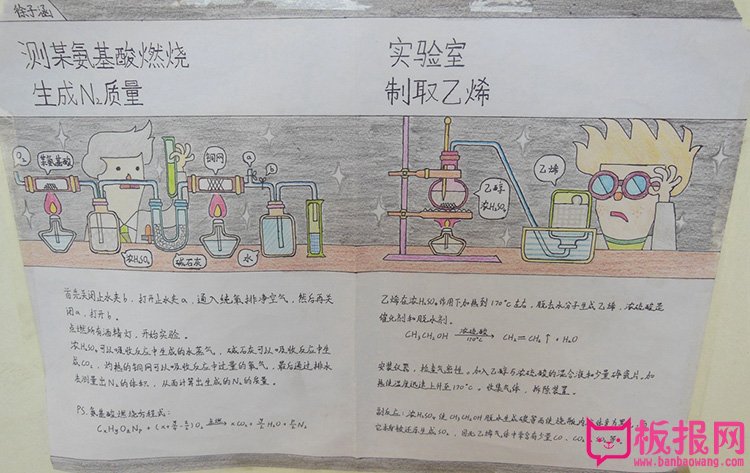 徐子涵
测某氨基酸燃烧
生成N₂质量
O₂
某氨基酸
铜网
a
b
浓H₂SO₄
碱石灰
水
首先关闭止水夹b，打开止水夹a，通入纯氧排净空气，然后再关
闭a，打开b。
点燃所有酒精灯，开始实验。
浓H₂SO₄可以吸收反应中生成的水蒸气，碱石灰可以吸收反应中生
成CO₂，灼热的铜网可以吸收反应中过量的氧气，最后通过排水
去测量出N₂的体积，从而计算出生成的N₂的质量。
PS.氨基酸燃烧方程式：
实验室
制取乙烯
乙醇
浓H₂SO₄
乙烯
乙烯在浓H₂SO₄作用下加热到170℃左右，脱去水分子生成乙烯，浓硫酸是
催化剂和脱水剂。
CH₃CH₂OH 浓硫酸 170℃ CH₂=CH₂↑ + H₂O
安装仪器，检查气密性。加入乙醇与浓硫酸的混合液和少量碎瓷片。加
热使温度迅速上升至170℃。收集气体，拆除装置。
副反应：浓H₂SO₄使CH₃CH₂OH脱水生成碳
它本身被还原生成SO₂，因此乙烯气体中常含有少量CO、CO₂、SO₂等
板报网
www.banbaowang.com